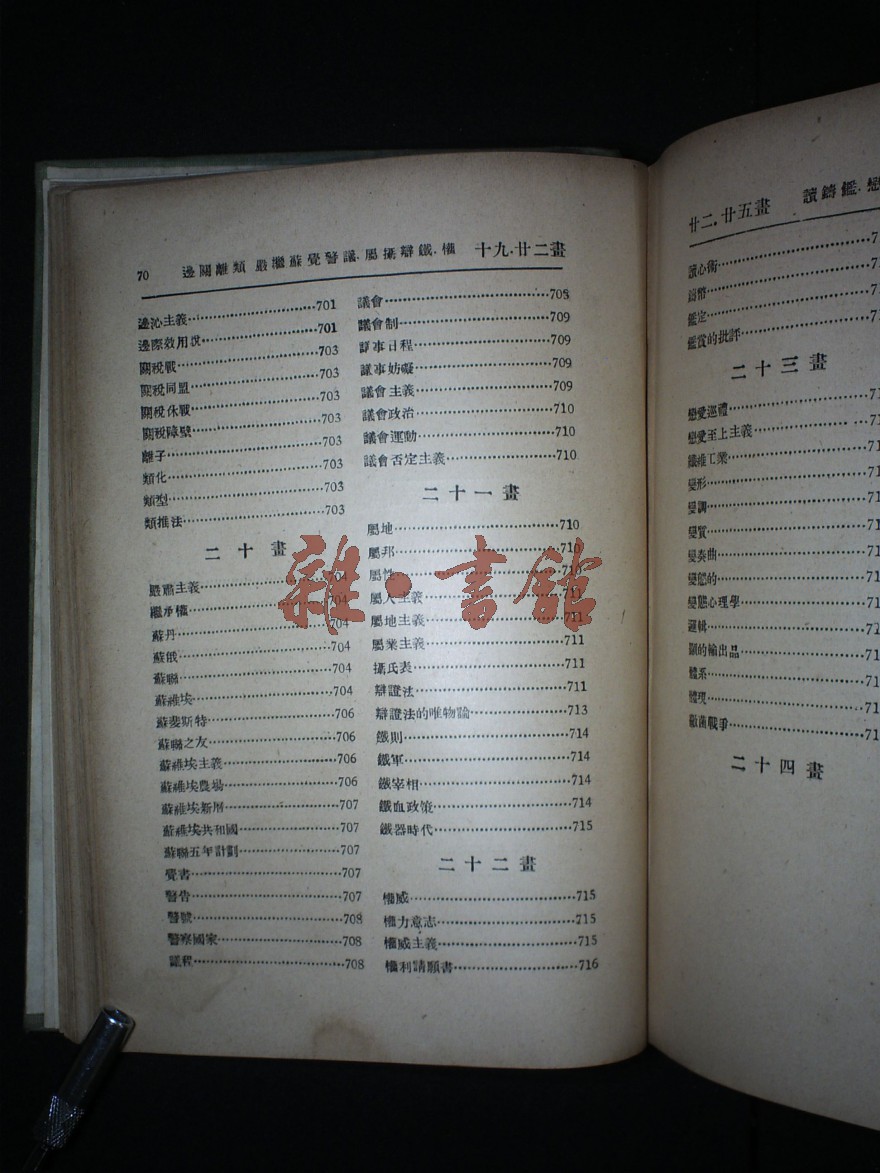 70 邊關離類 嚴繼蘇覺警議.屬攝辯鐵.權 十九.廿二畫
邊沁主義………701
邊際效用說………701
關稅戰………703
關稅同盟………703
關稅休戰………703
關稅障壁………703
離子………703
類化………703
類型………703
類推法………703
二十畫
嚴肅主義………704
繼承權………704
蘇丹………704
蘇俄………704
蘇聯………704
蘇維埃………704
蘇斐斯特………706
蘇聯之友………706
蘇維埃主義………706
蘇維埃農場………706
蘇維埃新曆………707
蘇維埃共和國………707
蘇聯五年計劃………707
覺書………707
警告………707
警號………708
警察國家………708
議程………708
議會………708
議會制………709
議事日程………709
議事妨礙………709
議會主義………709
議會政治………710
議會運動………710
議會否定主義………710
二十一畫
屬地………710
屬邦………710
屬性………710
屬人主義………711
屬地主義………711
屬業主義………711
攝氏表………711
辯證法………711
辯證法的唯物論………713
鐵則………714
鐵軍………714
鐵宰相………714
鐵血政策………714
鐵器時代………715
二十二畫
權威………715
權力意志………715
權威主義………715
權利請願書………716
雜·書館
廿二.廿五畫 讀鑄鑑.戀
讀心術………7
鑄幣………7
鑑定………7
鑑賞的批評………7
二十三畫
戀愛巡禮………71
戀愛至上主義………71
纖維工業………71
變形………71
變調………71
變質………71
變奏曲………71
變態的………71
變態心理學………71
邏輯………72
顯的輸出品………71
體系………71
體現………71
黴菌戰爭………71
二十四畫